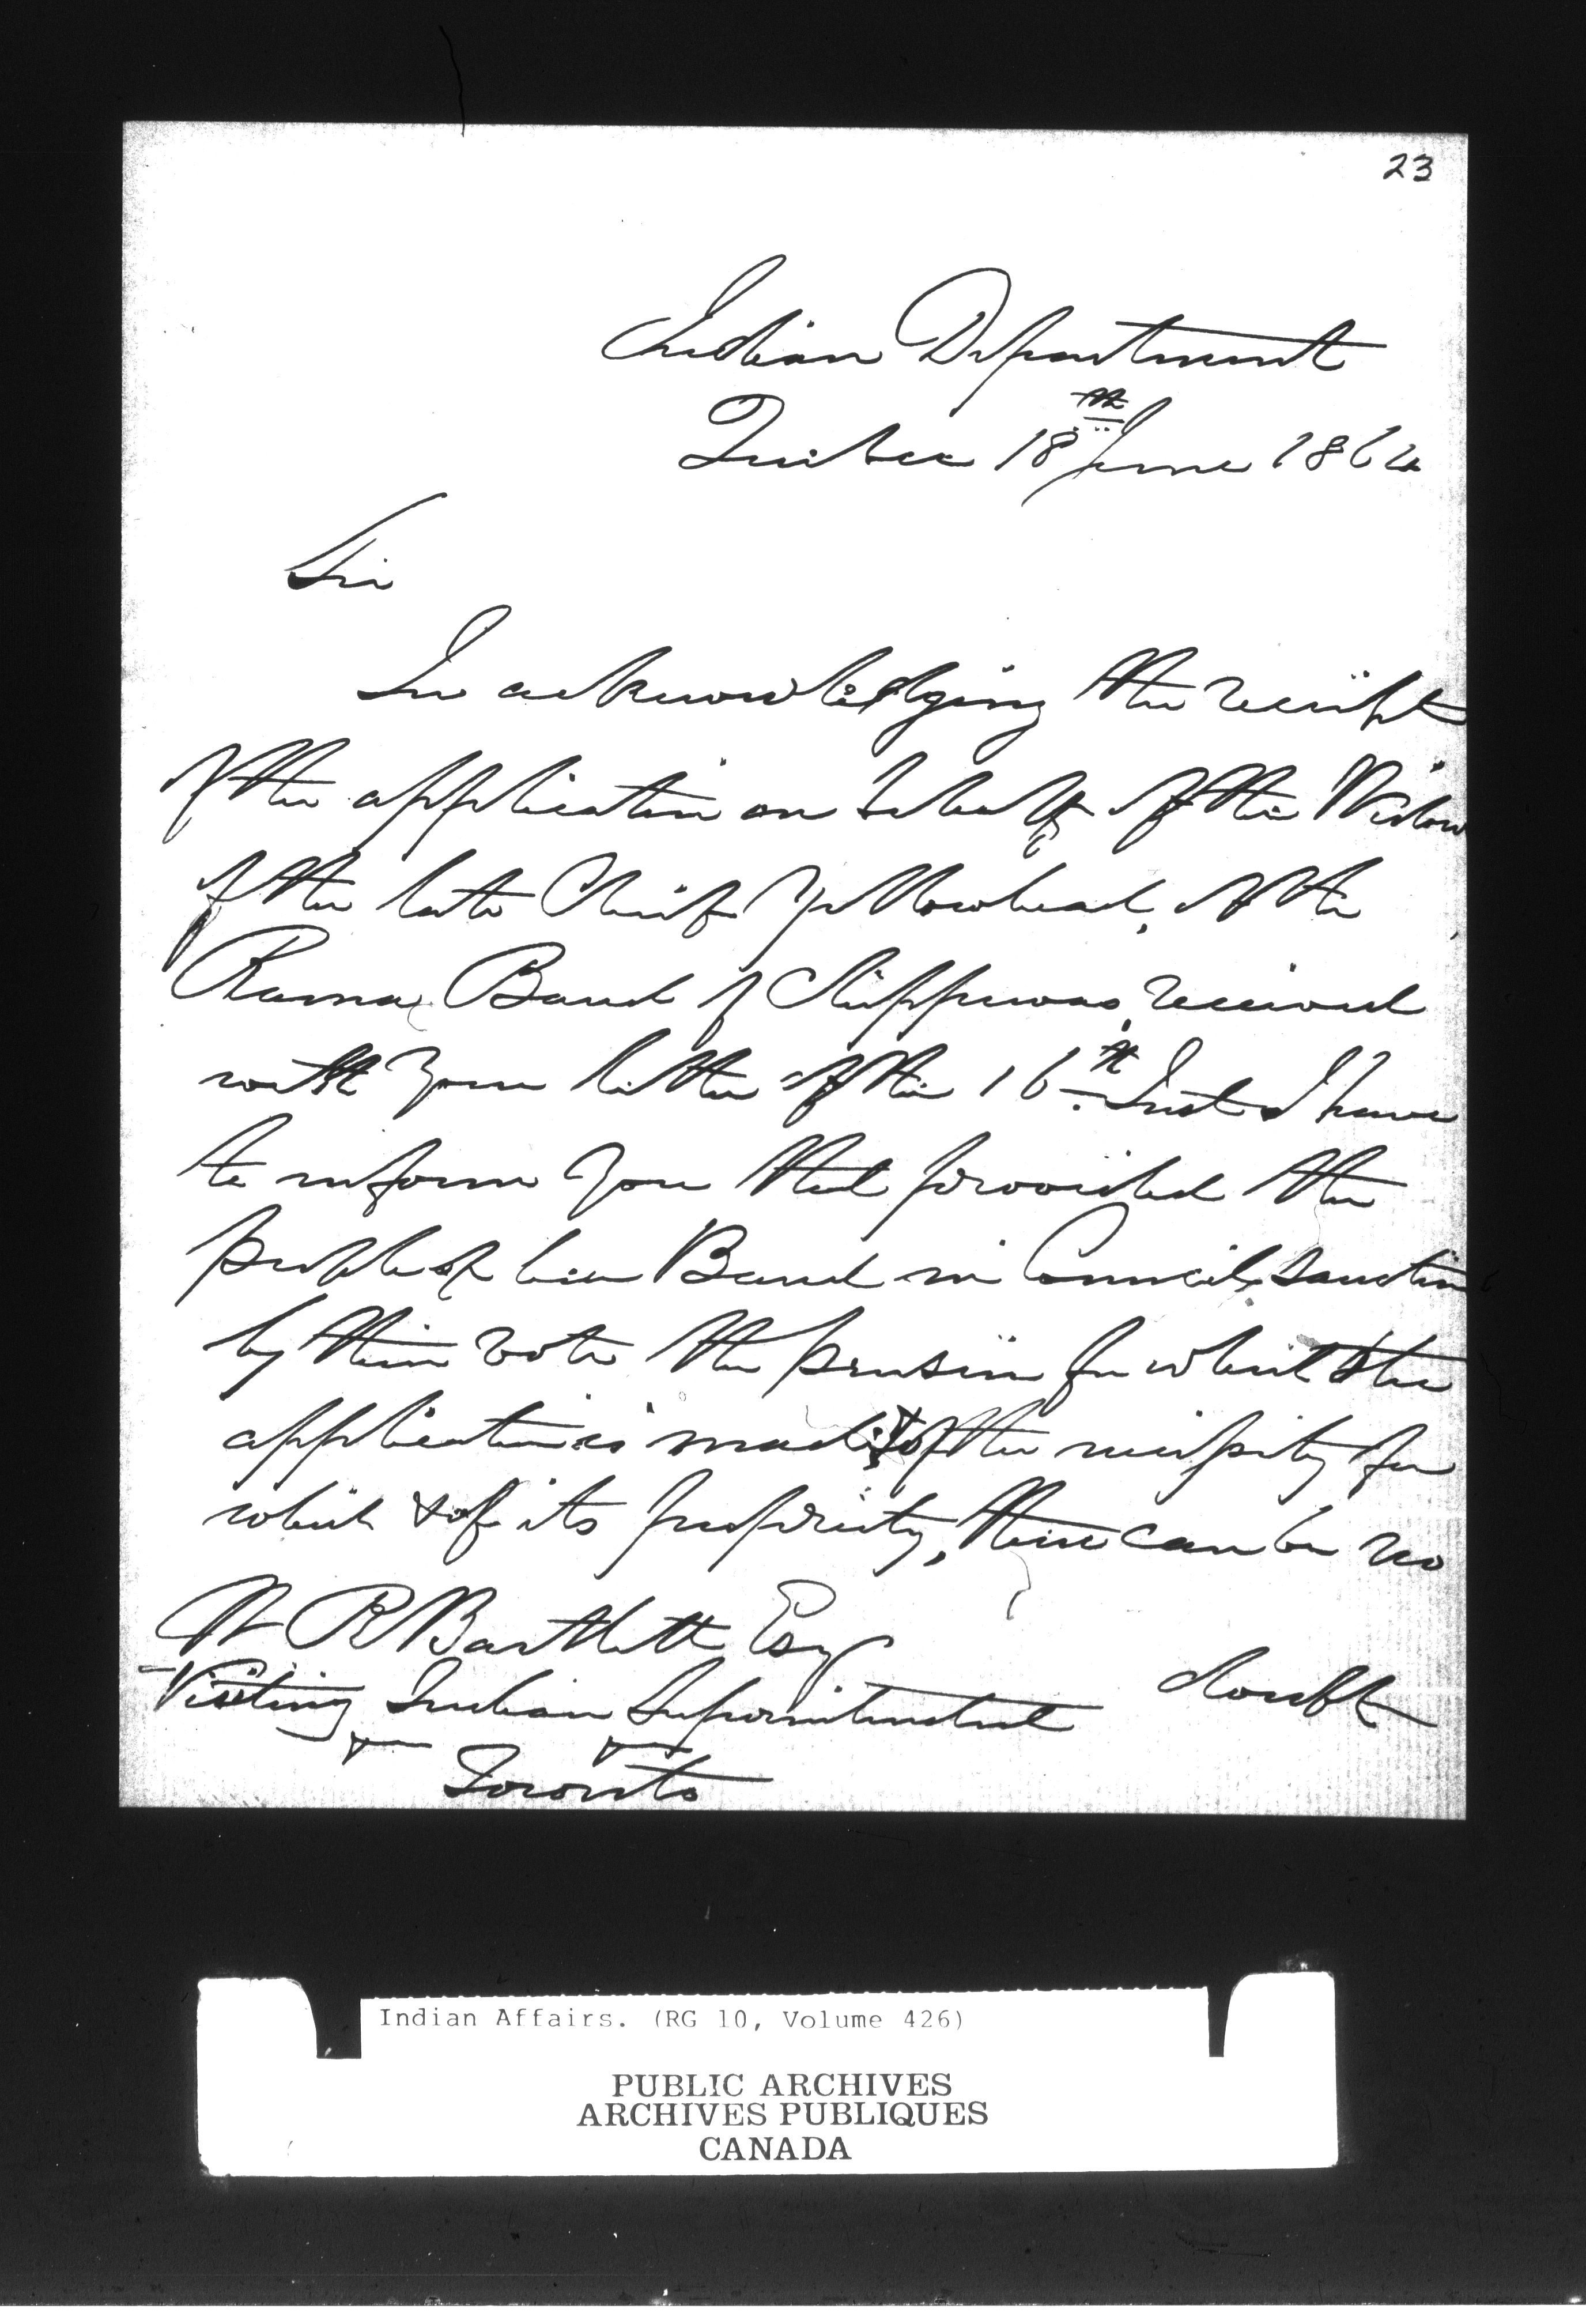 23
Indian Department
Quebec 18th June 1864
Sir
In acknowledging the receipt
of the application on behalf of the Widow
of the late Chief Yellowhead, of the
Rama Band of Chippewas, received
with your letter of the 16th Inst I have
to inform you that provided the
people of her Band in Council, sanction
by their vote the pension for which the
application is made, & of the necessity for
which & of its propriety, there can be no
doubt
W R Bartlett Esqr
Visiting Indian Superintendent
Toronto
Indian Affairs. (RG 10, Volume 426)
PUBLIC ARCHIVES
ARCHIVES PUBLIQUES
CANADA